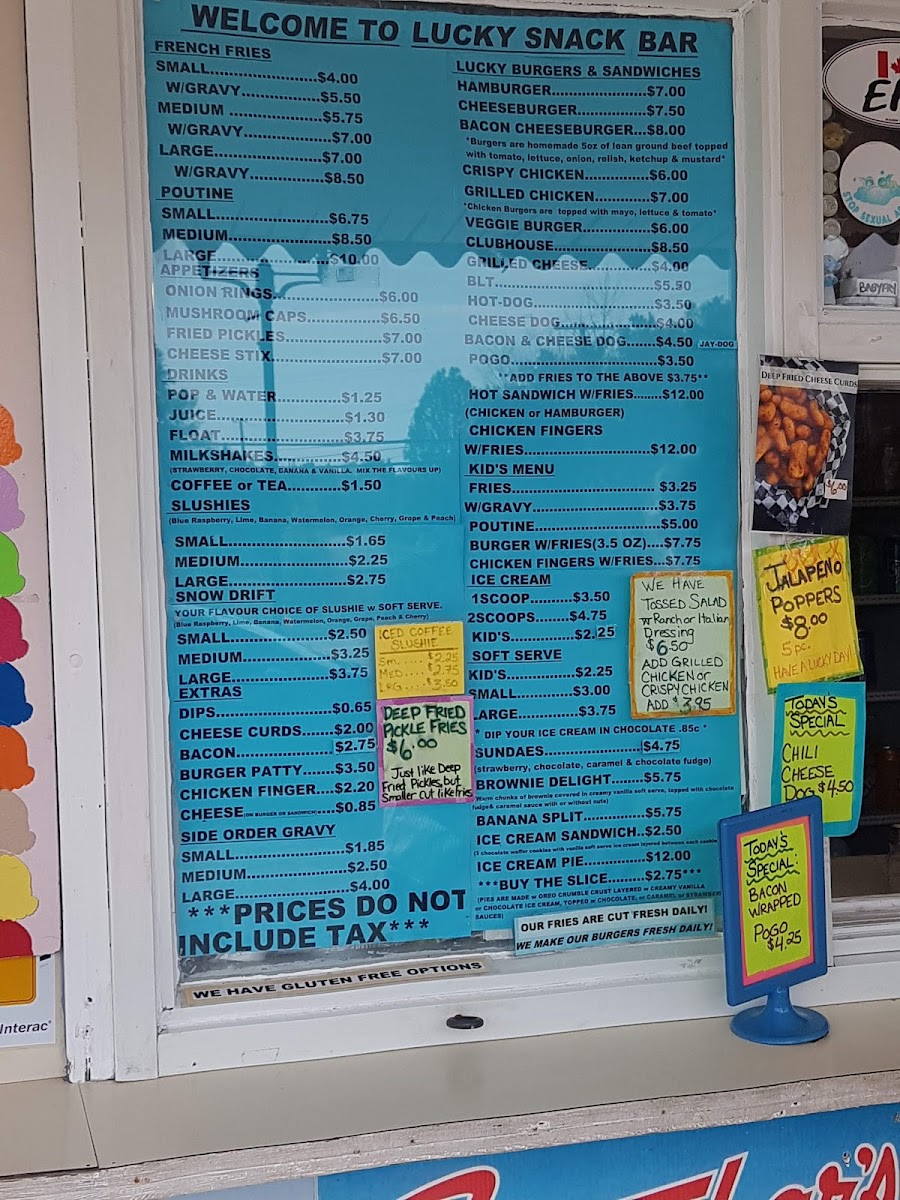 WELCOME TO LUCKY SNACK BAR
FRENCH FRIES
SMALL......................$4.00
W/GRAVY................$5.50
MEDIUM ...................$5.75
W/GRAVY..................$7.00
LARGE......................$7.00
W/GRAVY................$8.50
POUTINE
SMALL.......................$6.75
MEDIUM.....................$8.50
LARGE.......................$10.00
APPETIZERS
ONION RINGS......................$6.00
MUSHROOM CAPS...............$6.50
FRIED PICKLES....................$7.00
CHEESE STIX.......................$7.00
DRINKS
POP & WATER.............$1.25
JUICE..........................$1.30
FLOAT.........................$3.75
MILKSHAKES..............$4.50
(STRAWBERRY, CHOCOLATE, BANANA & VANILLA. MIX THE FLAVOURS UP)
COFFEE or TEA...........$1.50
SLUSHIES
(Blue Raspberry, Lime, Banana, Watermelon, Orange, Cherry, Grape & Peach)
SMALL.......................$1.65
MEDIUM.....................$2.25
LARGE.......................$2.75
SNOW DRIFT
YOUR FLAVOUR CHOICE OF SLUSHIE w SOFT SERVE.
(Blue Raspberry, Lime, Banana, Watermelon, Orange, Grape, Peach & Cherry)
SMALL....................$2.50
MEDIUM..................$3.25
LARGE....................$3.75
EXTRAS
DIPS.......................$0.65
CHEESE CURDS......$2.00
BACON...................$2.75
BURGER PATTY.......$3.50
CHICKEN FINGER....$2.20
CHEESE(ON BURGER OR SANDWICH)....$0.85
SIDE ORDER GRAVY
SMALL......................$1.85
MEDIUM...................$2.50
LARGE.....................$4.00
***PRICES DO NOT
INCLUDE TAX***
LUCKY BURGERS & SANDWICHES
HAMBURGER....................$7.00
CHEESEBURGER..............$7.50
BACON CHEESEBURGER...$8.00
*Burgers are homemade 5oz of lean ground beef topped
with tomato, lettuce, onion, relish, ketchup & mustard*
CRISPY CHICKEN.............$6.00
GRILLED CHICKEN...........$7.00
*Chicken Burgers are topped with mayo, lettuce & tomato*
VEGGIE BURGER..............$6.00
CLUBHOUSE....................$8.50
GRILLED CHEESE.............$4.00
BLT................................$5.50
HOT-DOG........................$3.50
CHEESE DOG...................$4.00
BACON & CHEESE DOG......$4.50 JAY-DOG
POGO.............................$3.50
**ADD FRIES TO THE ABOVE $3.75**
HOT SANDWICH W/FRIES.......$12.00
(CHICKEN or HAMBURGER)
CHICKEN FINGERS
W/FRIES...............................$12.00
KID'S MENU
FRIES..............................$3.25
W/GRAVY.........................$3.75
POUTINE.........................$5.00
BURGER W/FRIES(3.5 OZ)....$7.75
CHICKEN FINGERS W/FRIES...$7.75
ICE CREAM
1SCOOP.........$3.50
2SCOOPS.......$4.75
KID'S..............$2.25
SOFT SERVE
KID'S................$2.25
SMALL..............$3.00
LARGE.............$3.75
* DIP YOUR ICE CREAM IN CHOCOLATE .85c *
SUNDAES....................$4.75
(strawberry, chocolate, caramel & chocolate fudge)
BROWNIE DELIGHT.......$5.75
Warm chunks of brownie covered in creamy vanilla soft serve, topped with chocolate
fudge& caramel sauce with or without nuts)
BANANA SPLIT............$5.75
ICE CREAM SANDWICH..$2.50
(2 chocolate waffer cookies with vanilla soft serve ice cream layered between each cookie
ICE CREAM PIE............$12.00
***BUY THE SLICE........$2.75***
(PIES ARE MADE w OREO CRUMBLE CRUST LAYERED w CREAMY VANILLA
or CHOCOLATE ICE CREAM, TOPPED w CHOCOLATE, or CARAMEL, or STRAWBERRY
SAUCES)
OUR FRIES ARE CUT FRESH DAILY!
WE MAKE OUR BURGERS FRESH DAILY!
WE HAVE GLUTEN FREE OPTIONS
ICED COFFEE
SLUSHIE
Sm.....$2.25
MED....$2.75
LRG....$3.50
DEEP FRIED
PICKLE FRIES
$6.00
Just like Deep
Fried Pickles, but
Smaller cut like fries
WE HAVE
TOSSED SALAD
w Ranch or Italian
Dressing
$6.50
ADD GRILLED
CHICKEN or
CRISPY CHICKEN
ADD $3.95
DEEP FRIED CHEESE CURDS
$6.00
JALAPENO
POPPERS
$8.00
5 pc.
HAVE A LUCKY DAY!
TODAY'S
SPECIAL
CHILI
CHEESE
DOG $4.50
TODAY'S
SPECIAL:
BACON
WRAPPED
POGO
$4.25
STOP SEXUAL
BABYFRY
Interac